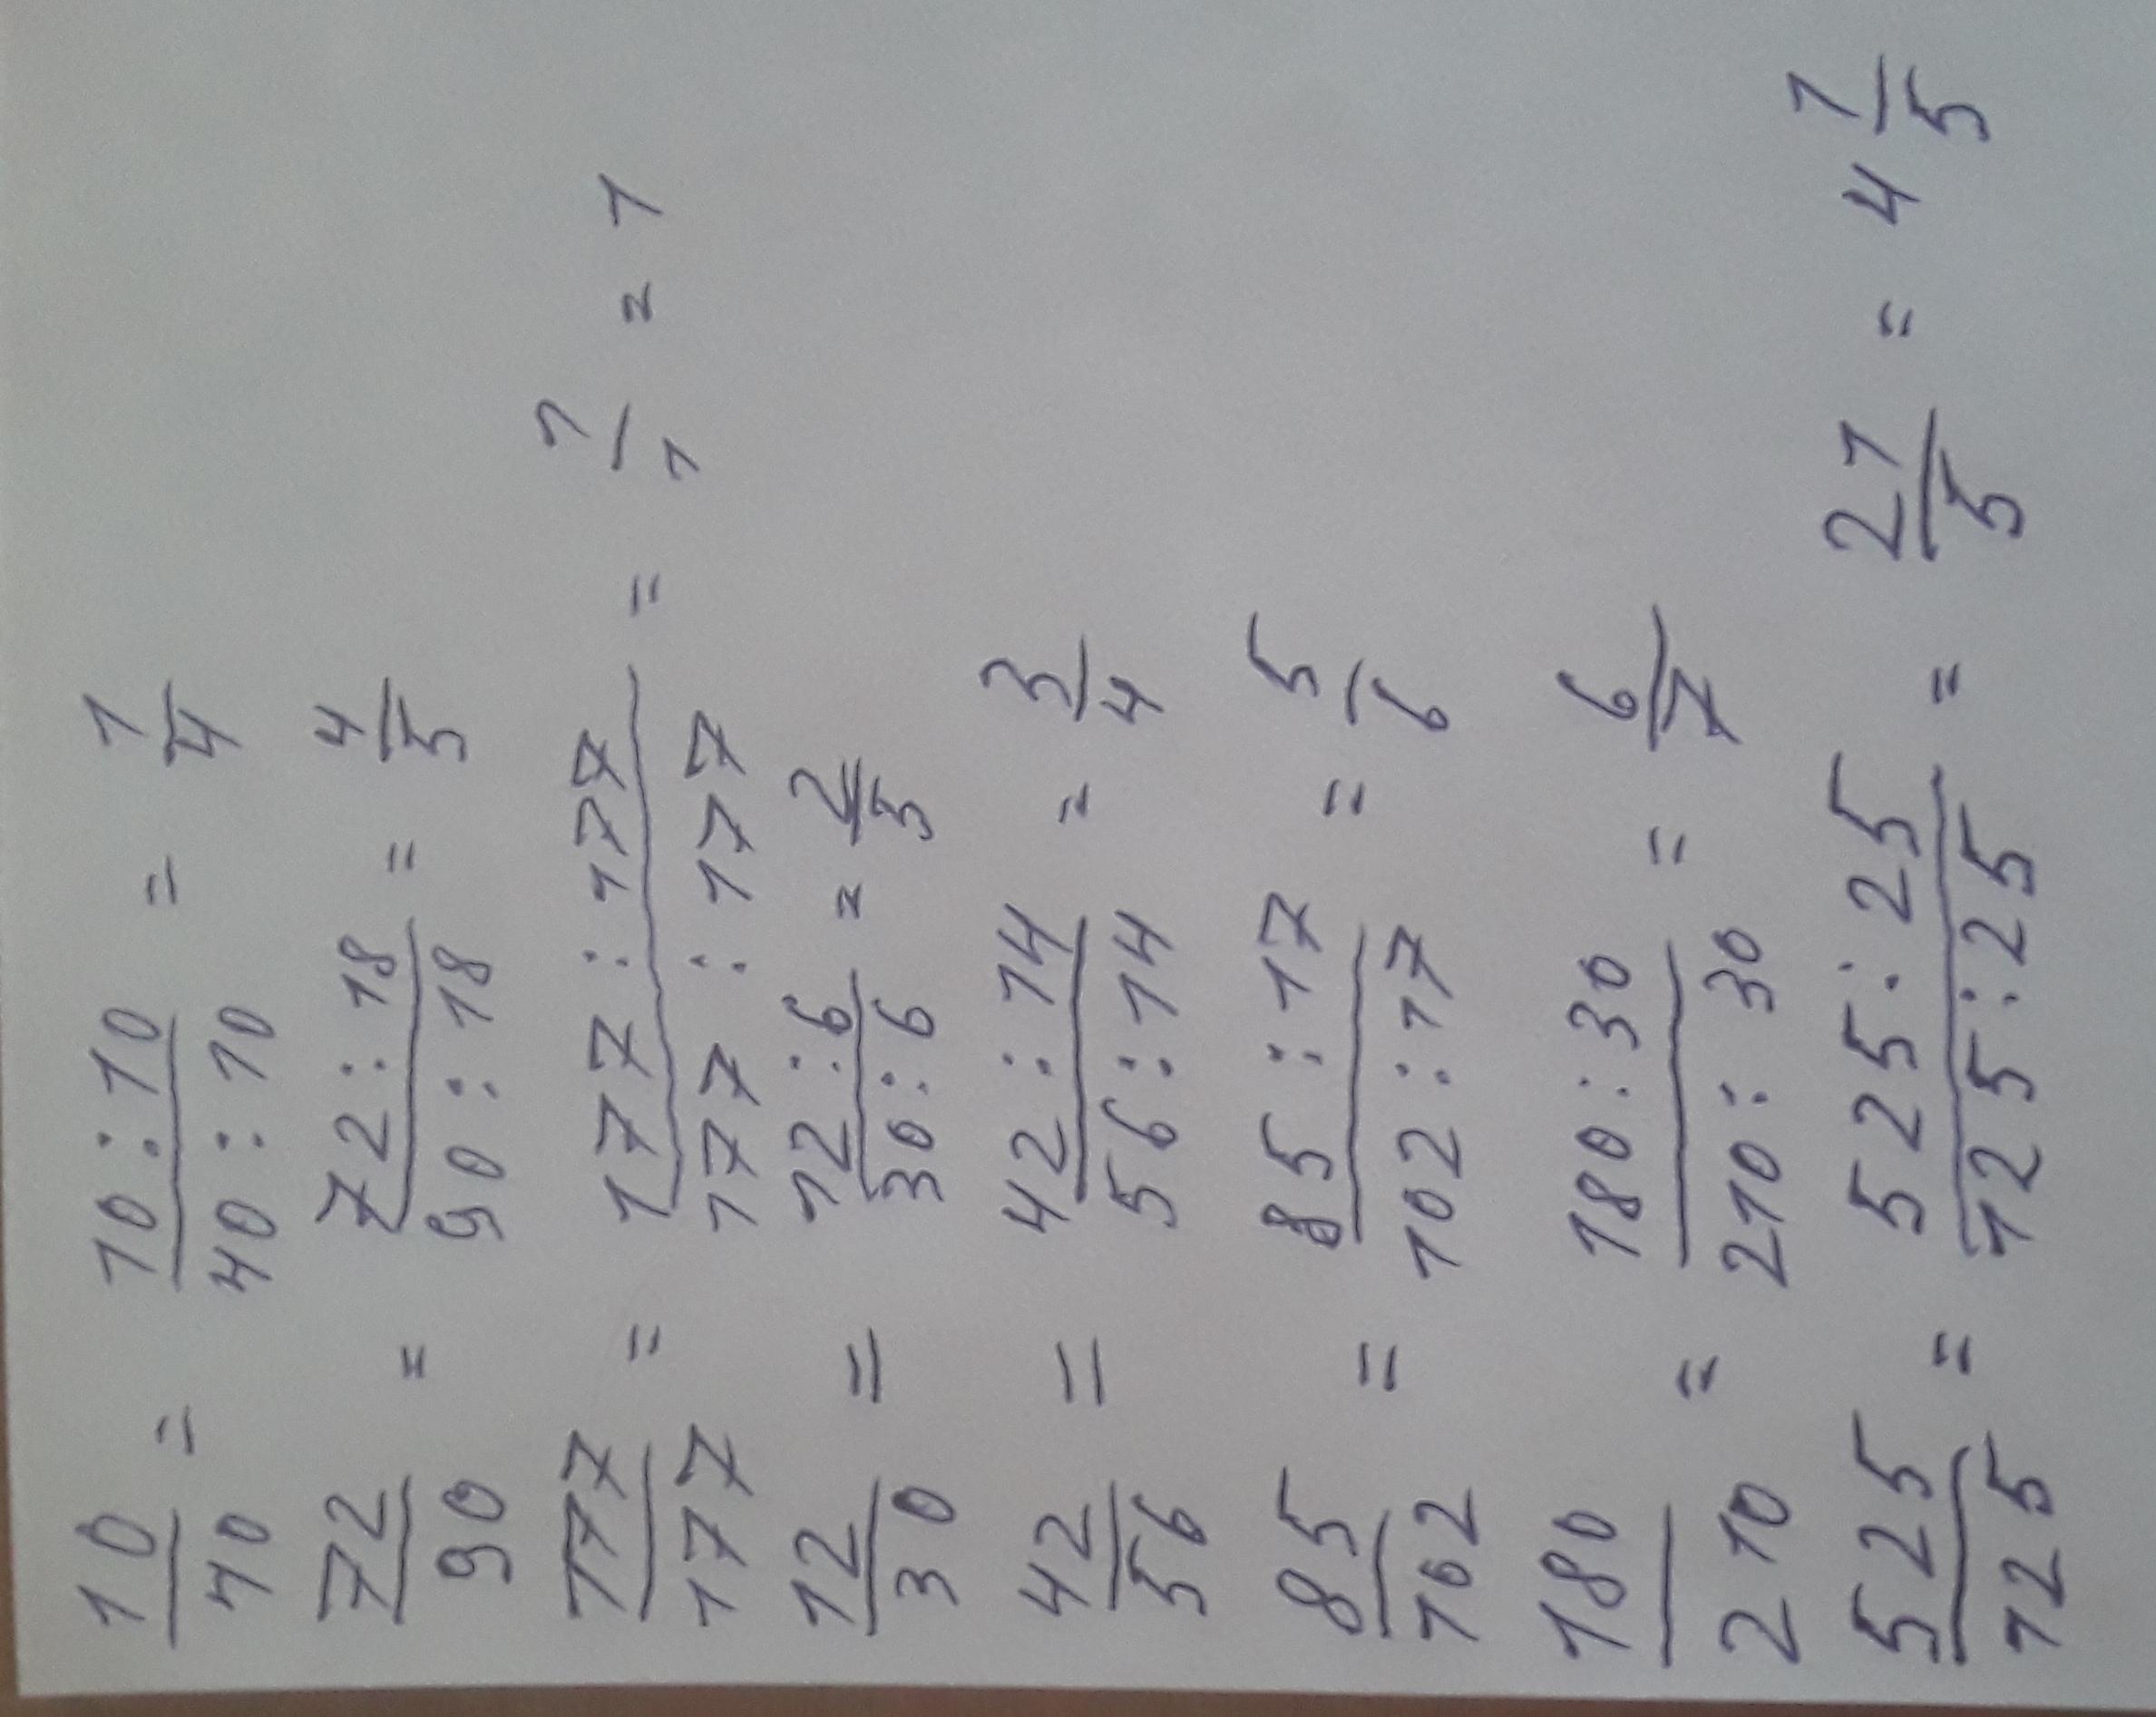 10/40 = 10:10/40:10 = 1/4
72/90 = 72:18/90:18 = 4/5
177/177 = 177:177/177:177 = 1/1 = 1
12/30 = 12:6/30:6 = 2/5
42/56 = 42:14/56:14 = 3/4
85/102 = 85:17/102:17 = 5/6
180/210 = 180:30/210:30 = 6/7
525/125 = 525:25/125:25 = 21/5 = 4 1/5